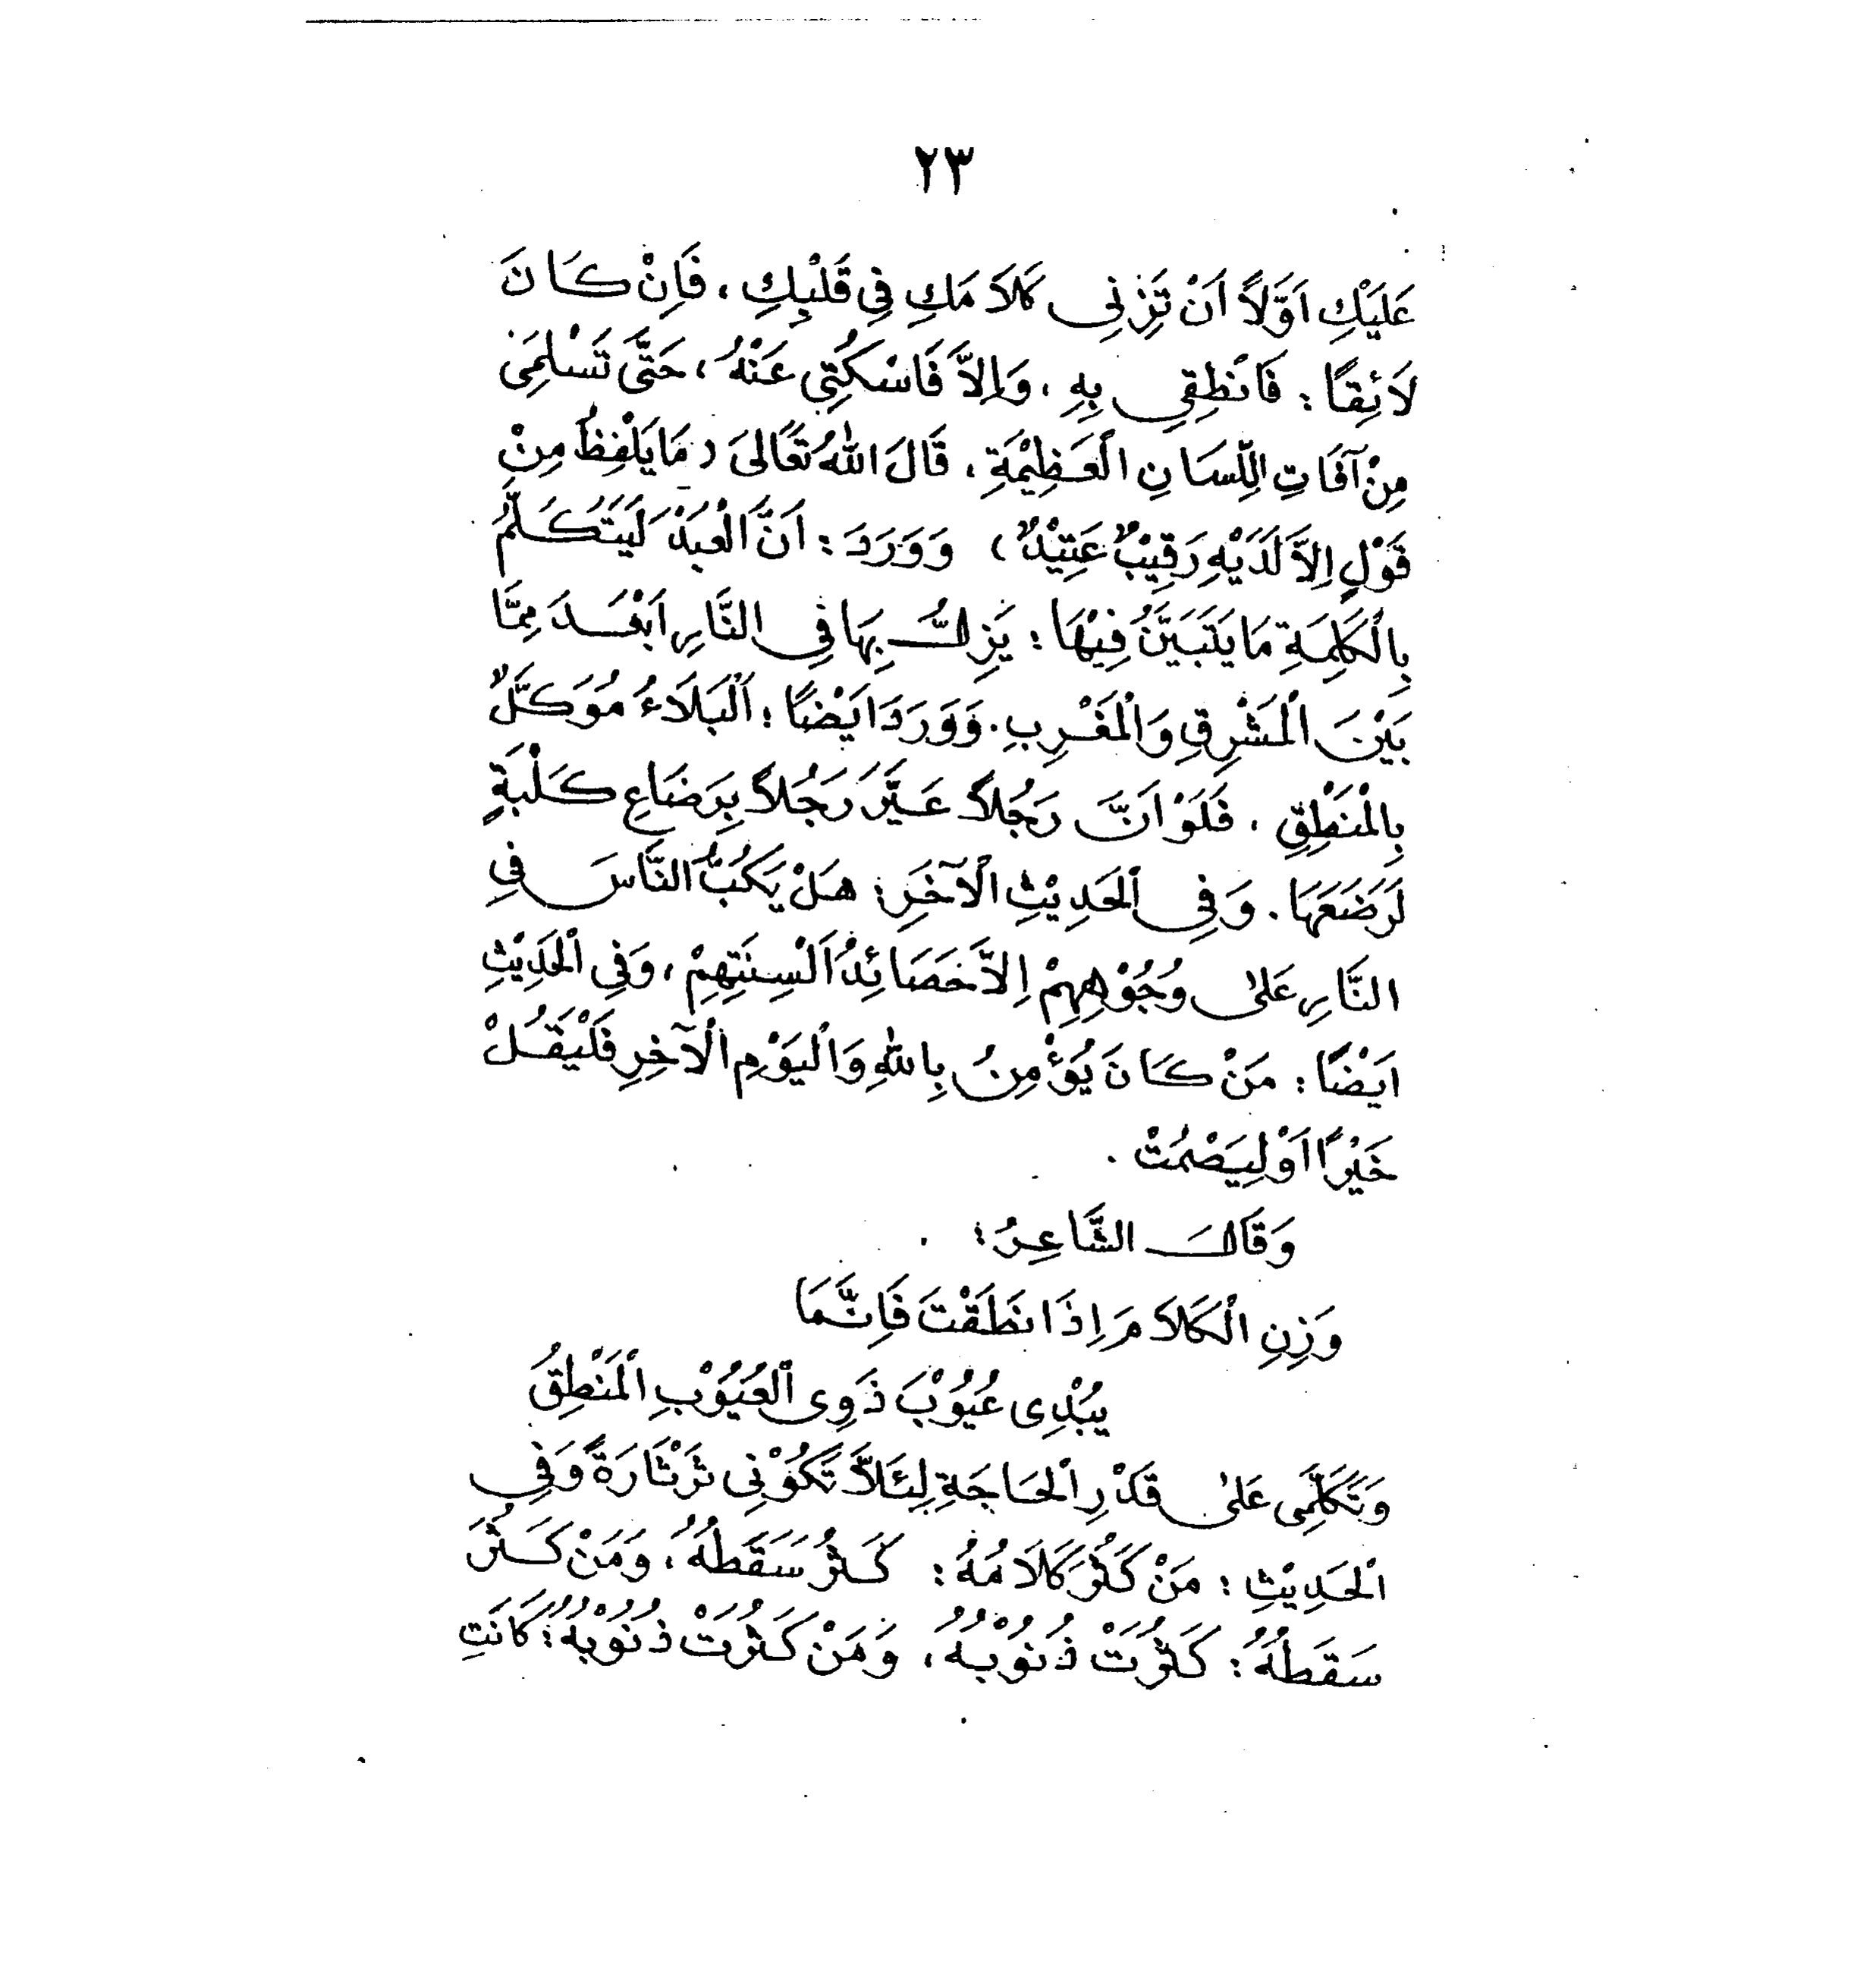 ٢٣
عَلَيْكِ اَوَّلاً اَنْ تَزِنِى كَلاَمَكِ فِى قَلْبِكِ ، فَاِنْ كَانَ
لاَئِقًا : فَانْطِقِى بِهِ ، وَاِلاَّ فَاسْكُتِى عَنْهُ ، حَتَّى تَسْلَمِىْ
مِنْ آفَاتِ اللِّسَانِ الْعَظِيْمَةِ ، قَالَ اللهُ تَعَالىَ ( مَا يَلْفِظُ مِنْ
قَوْلٍ اِلاَّ لَدَيْهِ رَقِيْبٌ عَتِيْدٌ ) وَوَرَدَ : اَنَّ الْعَبْدَ لَيَتَكَلَّمُ
بِالْكَلِمَةِ مَا يَتَبَيَّنُ فِيْهَا : يَزِلُّ بِهَا فِى النَّارِ اَبْعَدَ مِمَّا
بَيْنَ الْمَشْرِقِ وَالْمَغْرِبِ . وَوَرَدَ اَيْضًا : اَلْبَلاَءُ مُوَكَّلٌ
بِالْمَنْطِقِ ، فَلَوْ اَنَّ رَجُلاً عَيَّرَ رَجُلاً بِرَضَاعِ كَلْبَةٍ
لَرَضَعَهَا . وَفِى الْحَدِيْثِ الْآخَرِ : هَلْ يَكُبُّ النَّاسَ فِى
النَّارِ عَلىٰ وُجُوْهِهِمْ اِلاَّ حَصَائِدُ اَلْسِنَتِهِمْ ، وَفِى الْحَدِيْثِ
اَيْضًا : مَنْ كَانَ يُؤْمِنُ بِاللهِ وَالْيَوْمِ الْآخِرِ فَلْيَقُلْ
خَيْرًا اَوْ لِيَصْمُتْ .
وَقَالَ الشَّاعِرُ :
وَزِنِ الْكَلاَمَ اِذَا نَطَقْتَ فَاِنَّمَا
يُبْدِى عُيُوْبَ ذَوِى الْعُيُوْبِ الْمَنْطِقُ
وَتَكَلَّمِى عَلىٰ قَدْرِ الْحَاجَةِ لِئَلاَّ تَكُوْنِى ثَرْثَارَةً وَفِى
الْحَدِيْثِ : مَنْ كَثُرَ كَلاَمُهُ : كَثُرَ سَقَطُهُ ، وَمَنْ كَثُرَ
سَقَطُهُ : كَثُرَتْ ذُنُوْبُهُ ، وَمَنْ كَثُرَتْ ذُنُوْبُهُ : كَانَتِ